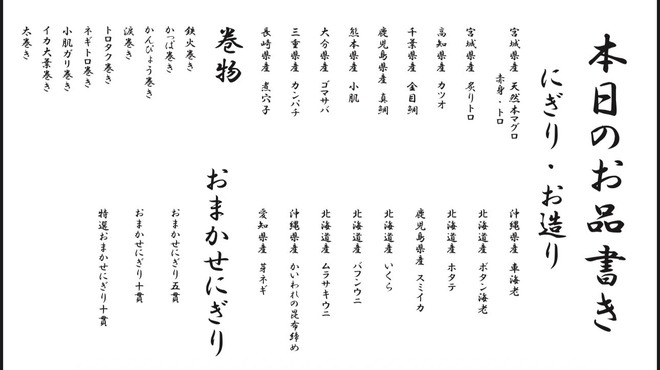 本日のお品書き
にぎり・お造り
宮城県産 天然本マグロ
赤身・トロ
宮城県産 炙りトロ
高知県産 カツオ
千葉県産 金目鯛
鹿児島県産 真鯛
熊本県産 小肌
大分県産 ゴマサバ
三重県産 カンパチ
長崎県産 煮穴子
沖縄県産 車海老
北海道産 ボタン海老
北海道産 ホタテ
鹿児島県産 スミイカ
北海道産 いくら
北海道産 バフンウニ
北海道産 ムラサキウニ
沖縄県産 かいわれの昆布締め
愛知県産 芽ネギ
巻物
鉄火巻き
かっぱ巻き
かんぴょう巻き
涙巻き
トロタク巻き
ネギトロ巻き
小肌ガリ巻き
イカ大葉巻き
太巻き
おまかせにぎり
おまかせにぎり五貫
おまかせにぎり十貫
特選おまかせにぎり十貫